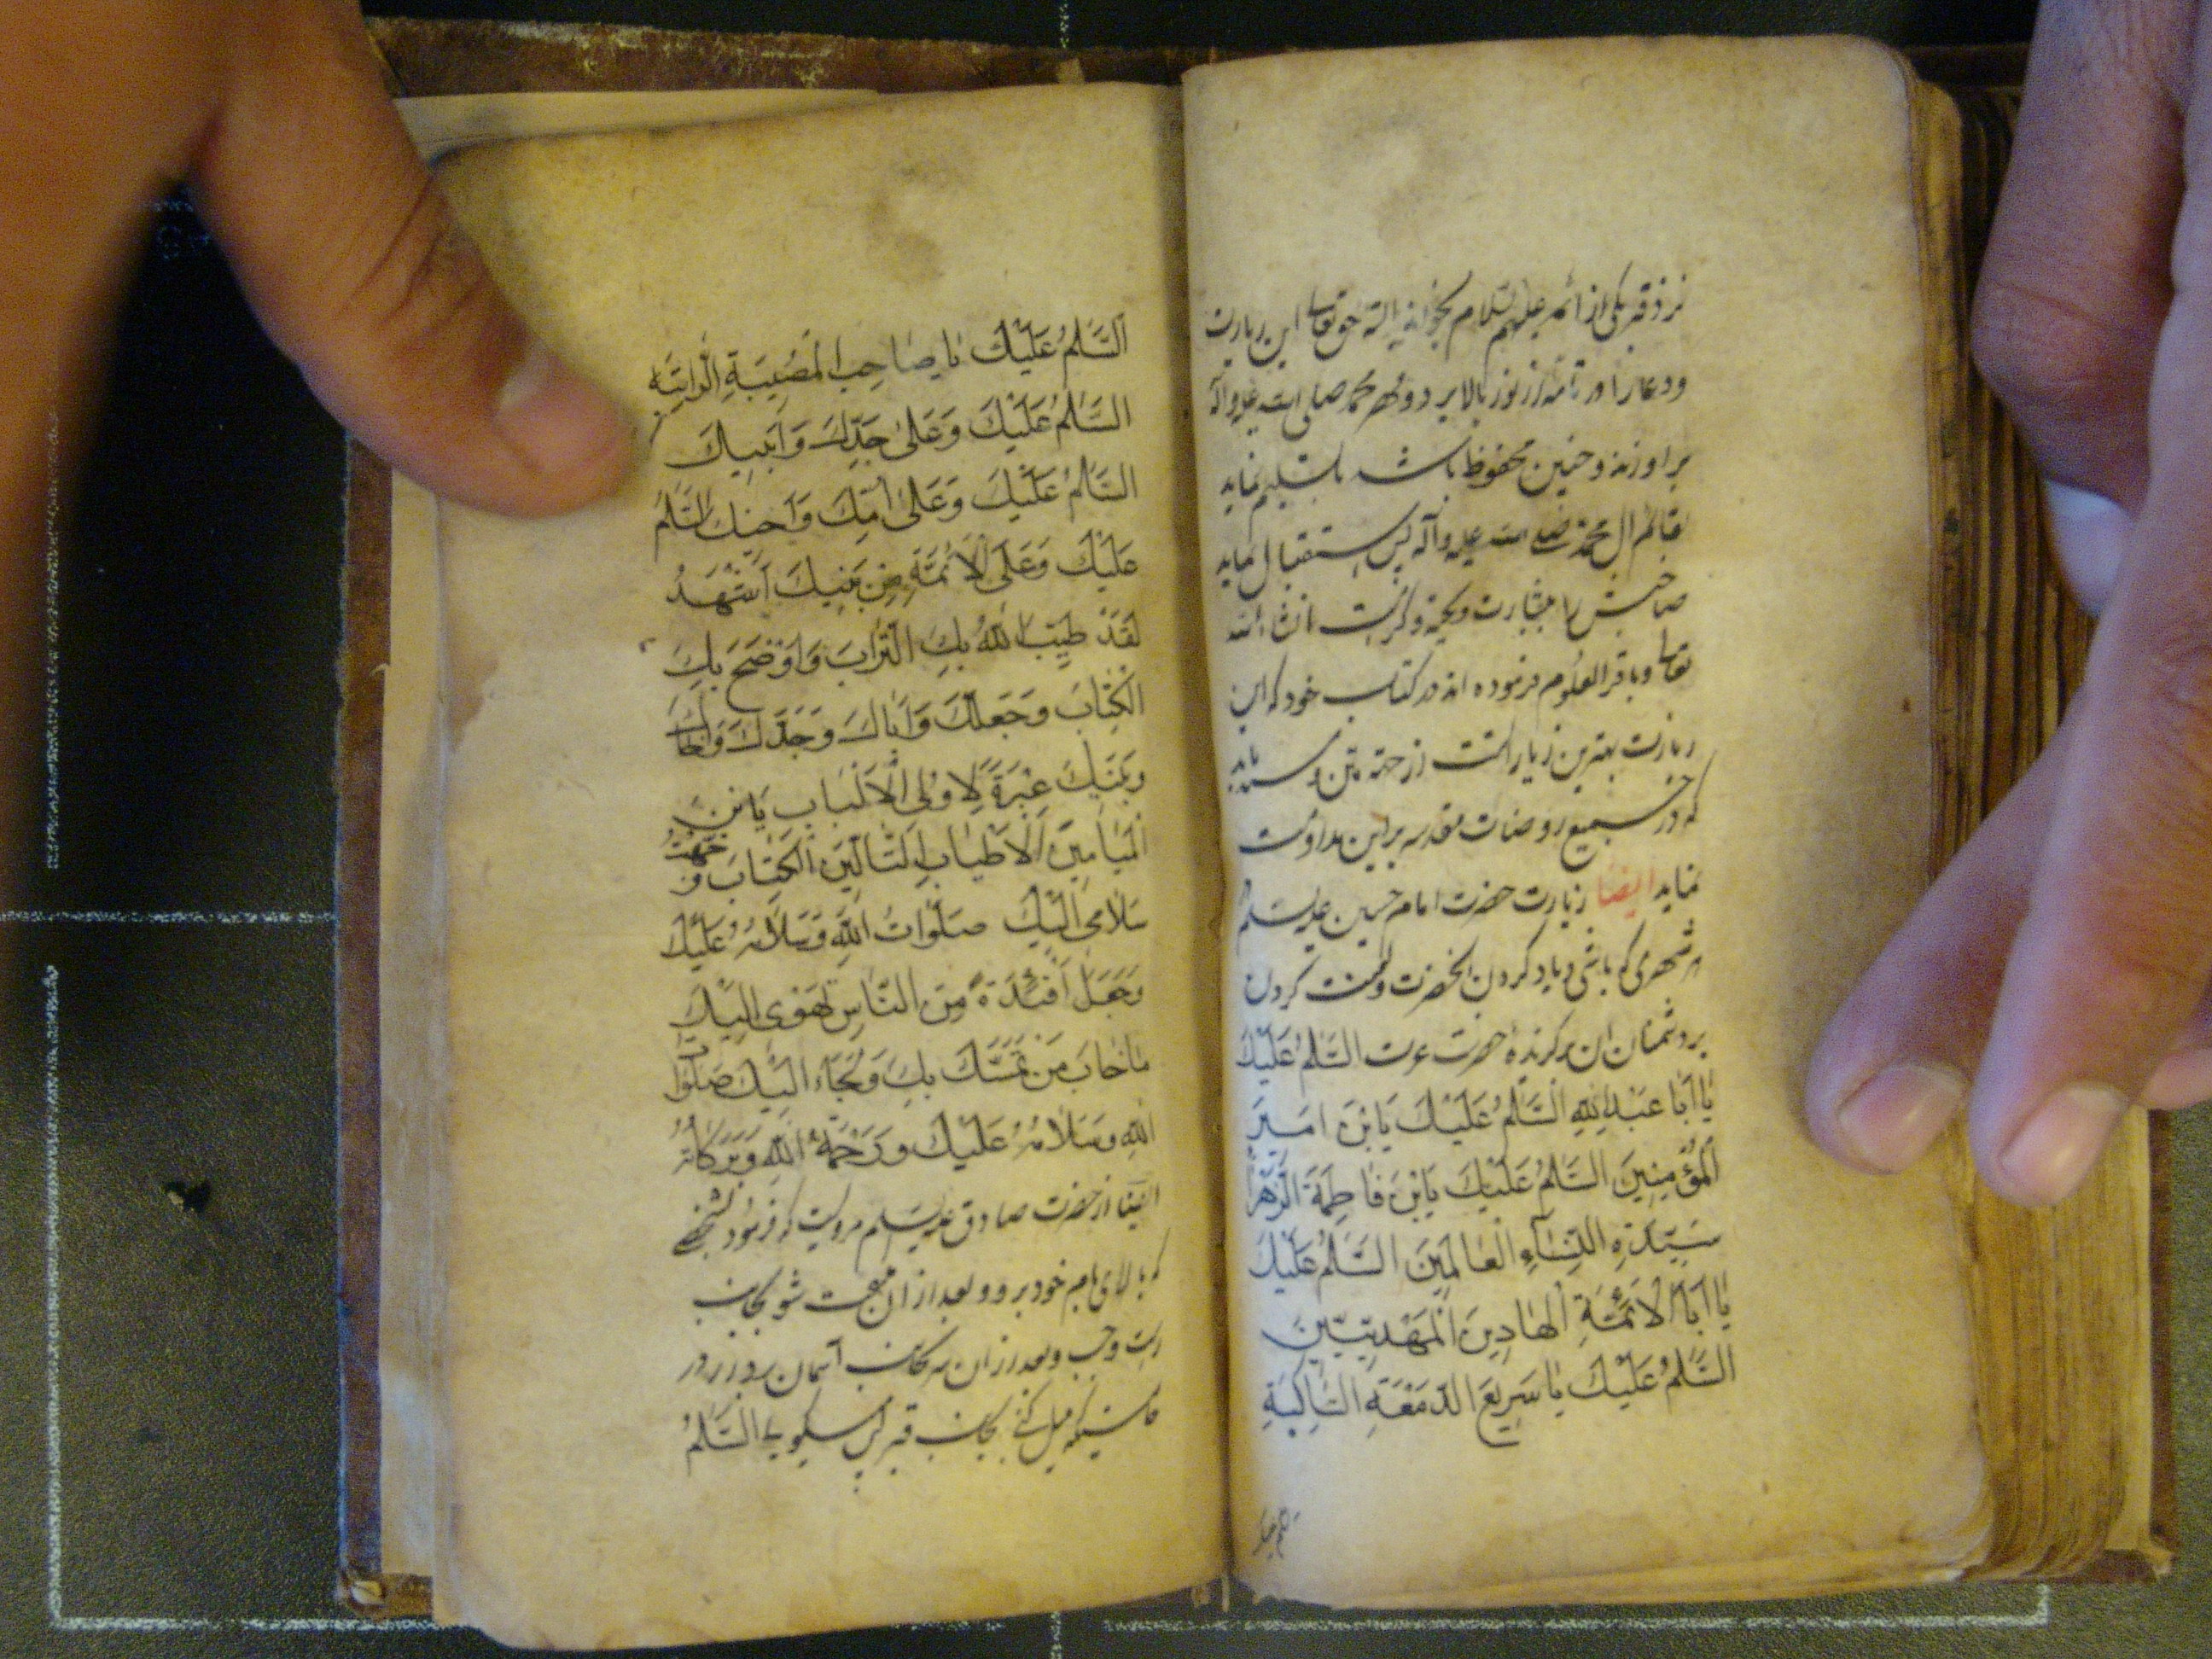 نزد قبر یکی از ائمه علیهم السلام بخواند البته حق تعالی این زیارت
و دعا را در نامه از نور بالا برد و مهر محمد صلی الله علیه وآله
بر او زنند و چنین محفوظ باشد تا تسلیم نماید
بقائم ال محمد صلی الله علیه وآله پس استقبال نماید
صاحبش را ببشارت و تحیة و کرامت انشاء الله
تعالی و باقر العلوم فرموده اند در کتاب خود که این
زیارت بهترین زیاراتست از جهة متن و سند باید
که در جمیع روضات مقدسه بر این مداومت
نماید ایضا زیارت حضرت امام حسین علیه السلم
هر شهری که باشی و یاد کردن انحضرت و لعنت کردن
بر دشمنان ان برکزیدۀ حضرت عزت السَّلمُ عَلَیْكَ
یٰا اَبٰا عَبْدِ اللهِ السَّلمُ عَلَیْكَ یَابْنَ امَیرَ
الْمُؤْمِنِینَ السَّلمُ عَلَیْكَ یَابْنَ فٰاطِمَةَ الزَّهْرٰا
سَیِّدَةِ النِّسٰآءِ الْعٰالَمِینَ السَّلمُ عَلَیْكَ
یٰا اَبَا الْاَئمَّةِ الْهٰادِینَ الْمَهْدِیِّینَ
السَّلمُ عَلَیْكَ یٰا سَرِیعَ الدَّمْعَةِ السّٰاکِبَةِ
السَّلمُ عَلَیْكَ یٰا صٰاحِبَ الْمُصِیبَةِ الْرٰاتِبَةِ
السَّلمُ عَلَیْكَ وَعَلیٰ جَدِّكَ وَاَبِیكَ
السَّلمُ عَلَیْكَ وَعَلیٰ اُمِّكَ وَاَخِیكَ السَّلمُ
عَلَیْكَ وَعَلَی الْاَئمَّةِ مِنْ بَنِیكَ اَشْهَدُ
لَقَدْ طَیَّبَ اللهُ بِكَ التُّرٰابَ وَاَوْضَحَ بِكَ
الْکِتٰابَ وَجَعَلَكَ وَاَبٰاكَ وَجَدَّكَ وَاَخٰاكَ
وَبَنِیكَ عِبْرَةً لِاوُلِی الْاَلْبٰابِ یَابْنَ
الْمَیٰامِینَ الْاَطْیٰابِ التّٰالِینَ الْکِتٰابَ وَجَّهْتُ
سَلٰامی اِلَیْكَ صَلَوٰاتُ اللهِ وَسَلٰامُهُ عَلَیْكَ
وَجَعَلَ اَفْئِدَةً مِنَ النّٰاسِ تَهْوی اِلَیْكَ
مٰا خٰابَ مَنْ تَمَسَّكَ بِكَ وَلَجَاَء اِلَیْكَ صَلَوٰاتُ
اللهِ وَسَلٰامُهُ عَلَیْكَ وَرَحْمَةُ اللهِ وَبَرَکٰاتُهُ
ایضا از حضرت صادق علیه السلم مرویست که فرمود بشخصی
که بالای بام خود برو و بعد از ان ملتفت شو بجانب
راست و چپ و بعد از ان سر بجانب آسمان بردار و در
میل کنی بجانب قبر پس میکویی السَّلمُ